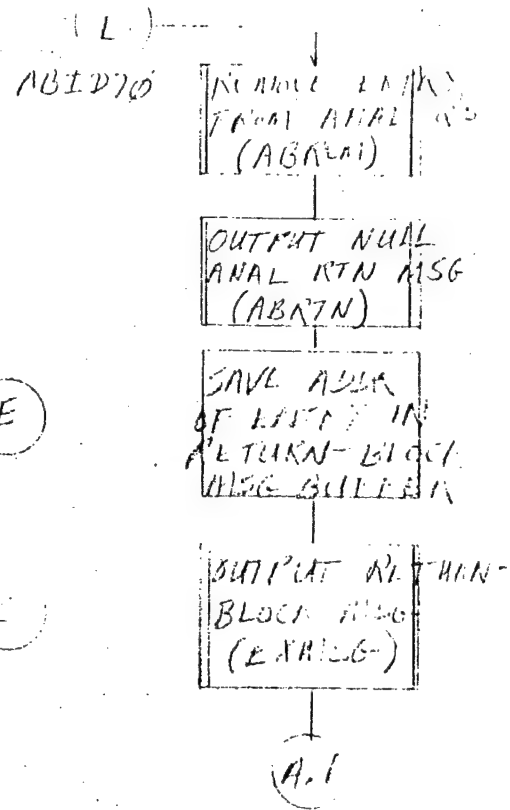 L
ABID70
REMOVE ENTRY
FROM ANAL
(ABRLM)
OUTPUT NULL
ANAL RTN MSG
(ABRTN)
SAVE ADDR
E
OF ENTRY IN
RETURN-BLOCK
MSG BUFFER
OUTPUT RETURN-
BLOCK MSG
A.1